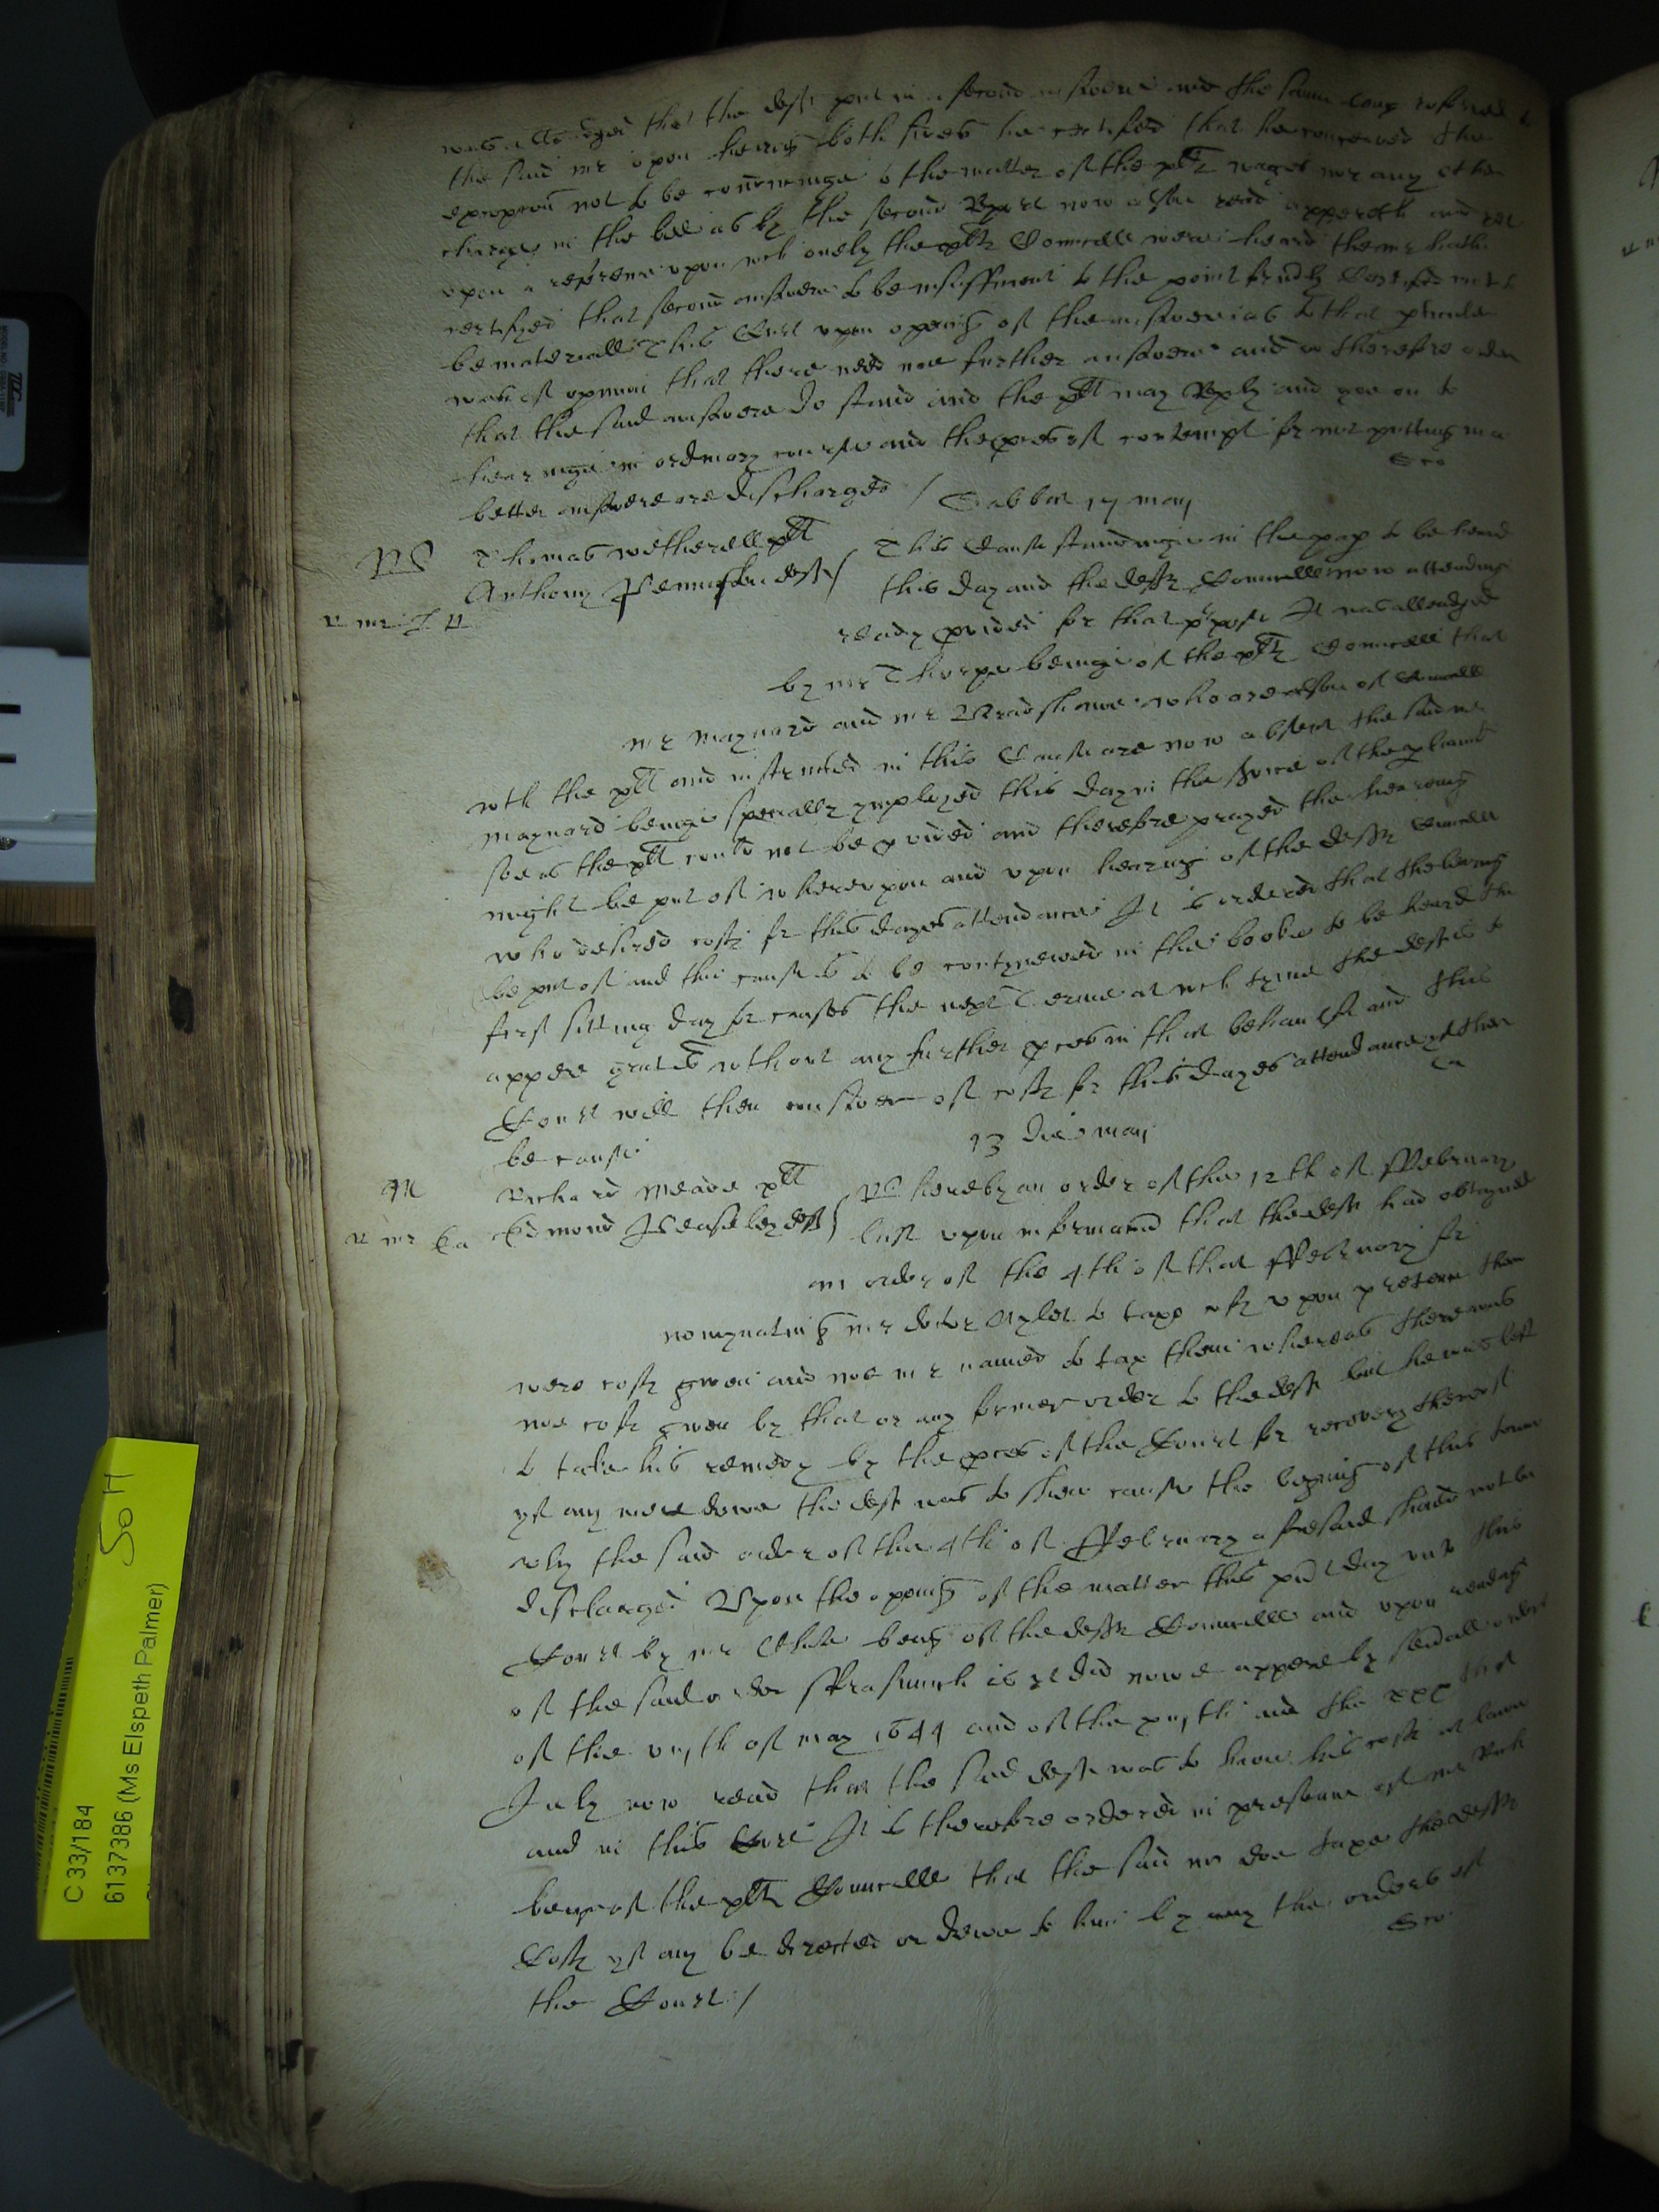 was alledged that the deft put in a second answere and the same being referred to
the said mr upon heareing both sides he certifyed that he conceaved the
excepcon not to be concerninge to the matter of the plts wages nor any other
charge in the bill as by the second Report now alsoe read appeareth and yet
upon a reference upon wch onely the plts Councell were heard the mr hath
certifyed that second answere to be insufficient to the point formerly Certified not to
be materiall This Court upon opening of the answere as to that pticuler
was of opinion that there need noe further answere and doe therefore order
that the said answere do stand and the plt may Reply and goe on to
hearinge in ordinary course and the proces of contempt for not putting in a
better answere are discharged /
Sabbati 17 may
Thomas Wetherell plt
Anthony deft
This Cause standinge in the pap to be heard
this day and the defts Councell now attending
ready pvided for that purpose It was alleadged
by mr Thorpe beinge of the plts Councell that
mr Maynard and mr Bradshawe who are alsoe of Councell
wth the plt and instructed in this Cause are now absent the said mr
Maynard beinge specially ymployed this day in the service of the pliamt
soe as the plt could not be pvided and therefore prayed the heareing
might be put of whereupon and upon hearing of the defts Councell
who desired costs for this dayes attendance It is ordered that the heareing
be put of and the cause is to be contynewed in the booke to be heard the
first sitting day for causes the next Terme at wch tyme the deft is to
appere gratis without any further pces in that behaulfe and this
Court will then consider of costs for this dayes attendance yf ther
be cause
13 die may
Richard Meade plt
Edmond deft
Whereby an order of the 12th of ffebruary
last upon informacon that the deft had obtayned
an order of the 4th of that ffebruary for
nominateing mr doctor Aylet to taxe costs upon pretence there
were costs given and noe mr named to tax them whereas there was
noe costs given by that or any former order to the deft but he was left
to take his remedy by the pces of the Court for recovery thereof
yf any were dewe the deft was to shew cause the begining of this terme
why the said order of the 4th of ffebruary aforesaid should not be
discharged Upon the opening of the matter this psent day unto this
Court by mr White being of the defts Councell and upon reading
of the said order fforasmuch as yt did nowe appere by severall orders
of the viijth of may 1644 and of the xviijth and the xxxth of
July now read that the said deft was to have his costs at lawe
and in this Court It is therefore ordered in presence of mr
being of the plts Councell that the said mr doe taxe the defts
Costs yf any be directed or dewe to him by any the orders of
the Court /
C 33/184
6137386 (Ms Elspeth Palmer)
SoH